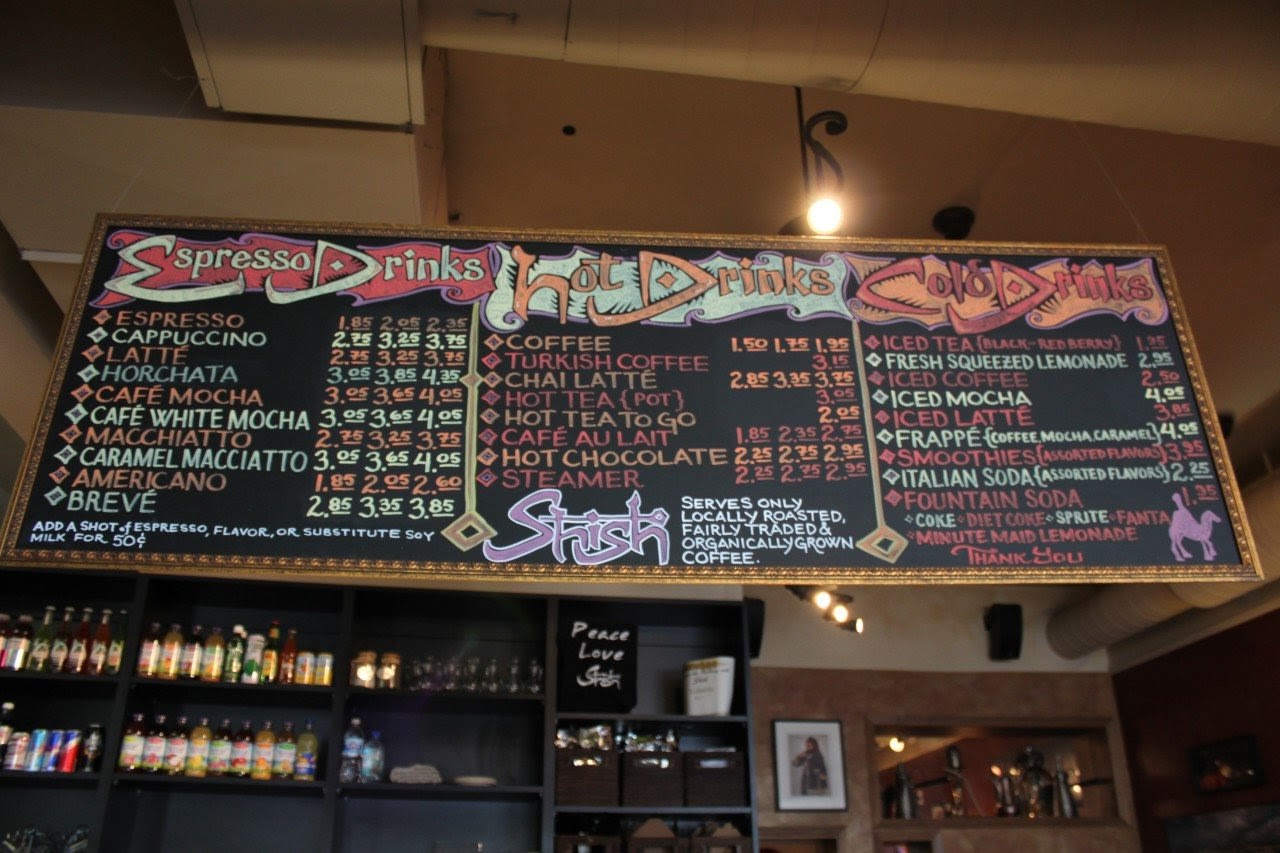 Espresso Drinks
ESPRESSO 1.85 2.05 2.35
CAPPUCCINO 2.75 3.25 3.75
LATTÉ 2.75 3.25 3.75
HORCHATA 3.05 3.85 4.35
CAFÉ MOCHA 3.05 3.65 4.05
CAFÉ WHITE MOCHA 3.05 3.65 4.05
MACCHIATTO 2.75 3.25 3.75
CARAMEL MACCIATTO 3.05 3.65 4.05
AMERICANO 1.85 2.05 2.60
BREVÉ 2.85 3.35 3.85
ADD A SHOT of ESPRESSO, FLAVOR, OR SUBSTITUTE SOY
MILK FOR 50¢
Hot Drinks
COFFEE 1.50 1.75 1.95
TURKISH COFFEE 3.15
CHAI LATTÉ 2.85 3.35 3.75
HOT TEA {POT} 3.05
HOT TEA TO GO 2.05
CAFÉ AU LAIT 1.85 2.35 2.75
HOT CHOCOLATE 2.25 2.75 2.95
STEAMER 2.25 2.75 2.95
Shish
SERVES ONLY
LOCALLY ROASTED,
FAIRLY TRADED &
ORGANICALLY GROWN
COFFEE.
Cold Drinks
ICED TEA {BLACK or RED BERRY} 1.95
FRESH SQUEEZED LEMONADE 2.95
ICED COFFEE 2.50
ICED MOCHA 4.05
ICED LATTÉ 3.85
FRAPPÉ {COFFEE, MOCHA, CARAMEL} 4.05
SMOOTHIES {ASSORTED FLAVORS} 3.95
ITALIAN SODA {ASSORTED FLAVORS} 2.25
FOUNTAIN SODA 1.95
COKE DIET COKE SPRITE FANTA
MINUTE MAID LEMONADE
THANK YOU
Peace
Love
Shish